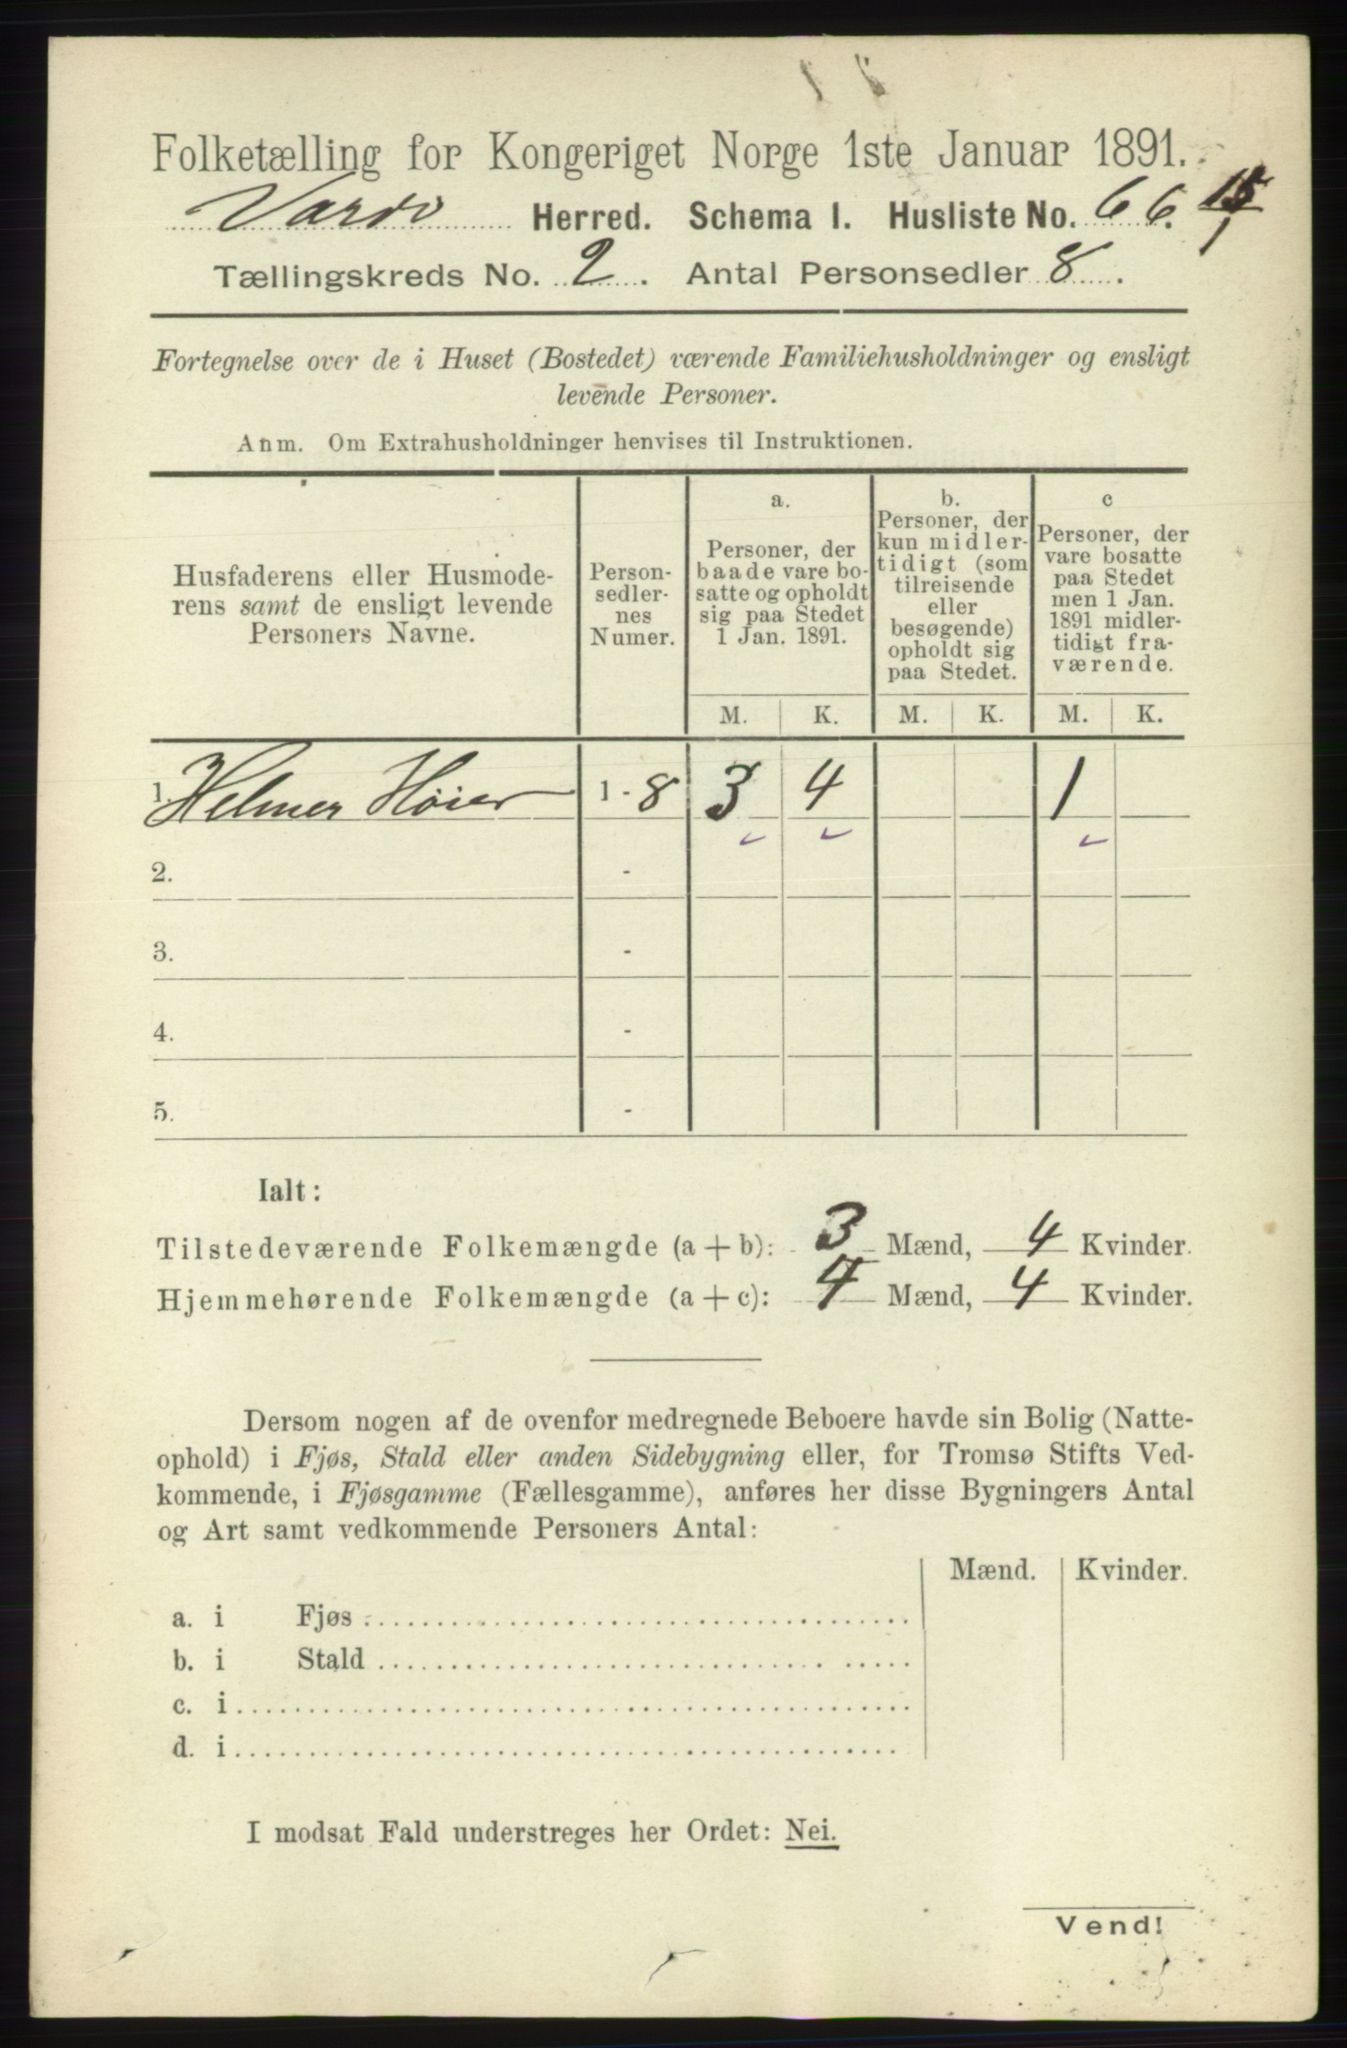 Folketælling for Kongeriget Norge 1ste Januar 1891.
Vardö Herred. Schema I. Husliste No. 66. 15/1
Tællingskreds No. 2. Antal Personsedler 8.
Fortegnelse over de i Huset (Bostedet) værende Familiehusholdninger og ensligt
levende Personer.
Anm. Om Extrahusholdninger henvises til Instruktionen.
Husfaderens eller Husmode-
rens samt de ensligt levende
Personers Navne.
Person-
sedler-
nes
Numer.
a.
Personer, der
baade vare bo-
satte og opholdt
sig paa Stedet
1 Jan. 1891.
b.
Personer, der
kun midler-
tidigt (som
tilreisende
eller
besøgende)
opholdt sig
paa Stedet.
c
Personer, der
vare bosatte
paa Stedet
men 1 Jan.
1891 midler-
tidigt fra-
værende.
M. K. M. K. M. K.
1. Helmer Höier 1 - 8 3 4 1
2. -
3. -
4. -
5. -
Ialt:
Tilstedeværende Folkemængde (a + b): 3 Mænd, 4 Kvinder.
Hjemmehørende Folkemængde (a + c): 4 Mænd, 4 Kvinder.
Dersom nogen af de ovenfor medregnede Beboere havde sin Bolig (Natte-
ophold) i Fjøs, Stald eller anden Sidebygning eller, for Tromsø Stifts Ved-
kommende, i Fjøsgamme (Fællesgamme), anføres her disse Bygningers Antal
og Art samt vedkommende Personers Antal:
Mænd. Kvinder.
a. i Fjøs
b. i Stald
c. i
d. i
I modsat Fald understreges her Ordet: Nei.
Vend!